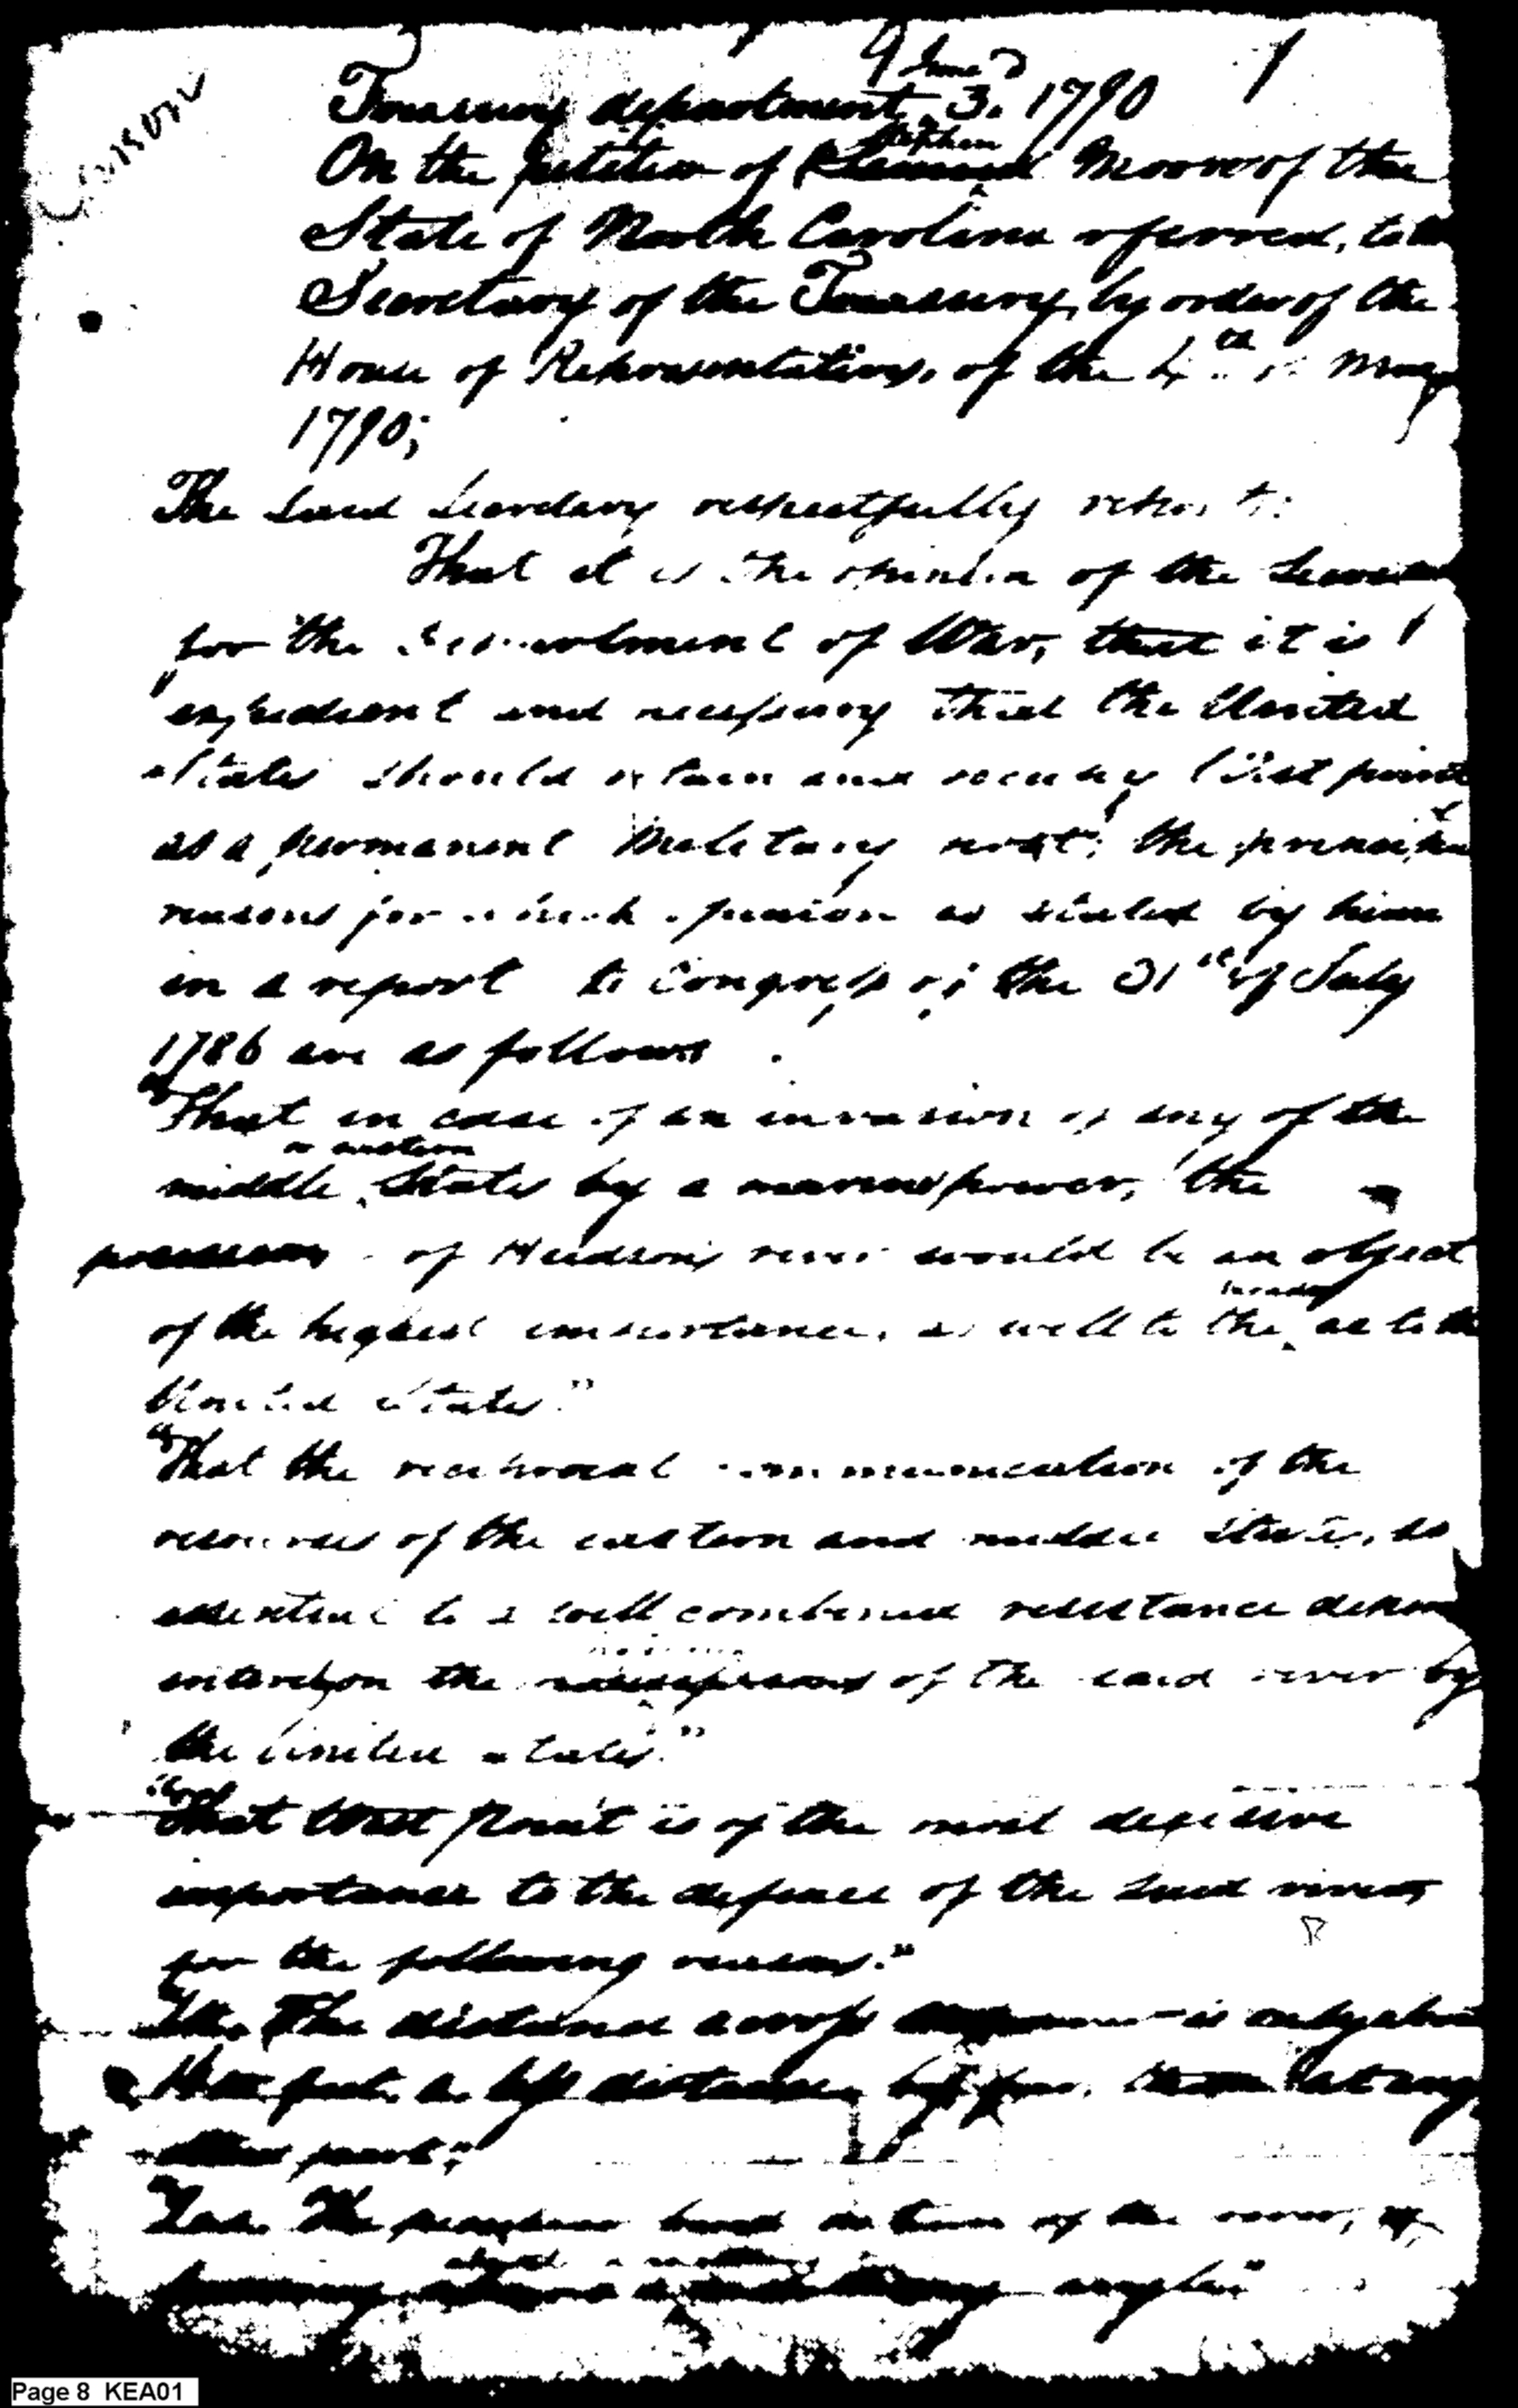 9 June 3. 1790
Treasury department
On the petition of Stephen Moore of the
State of North Carolina referred, to the
Secretary of the Treasury, by order of the
House of Representatives, of the May
1790;
The said Secretary respectfully reports:
That it is the opinion of the Secretary
for the department of War, that it is
expedient and necessary that the United
States should retain and occupy West point
as a permanent Military post; the principal
reasons for which opinion as stated by him
in a report to Congress of the 31st of July
1786 are as follows
"That in case of an invasion of any of the
middle or eastern States by a marine power, the
possession of Hudson's river would be an object
of the highest importance, as well to the invader as to the
United States."
"That the reciprocal communication of the
resources of the eastern and middle States, so
essential to a well combined resistance depends
entirely on the possession of the said river by
the United States."
"That West Point is of the most decisive
importance to the defence of the said river,
for the following reasons."
The distance across is only about
feet, a less distance by far, than at any
other part;
The peculiar bend or turn of the river,
forming angles"
Page 8 KEA01